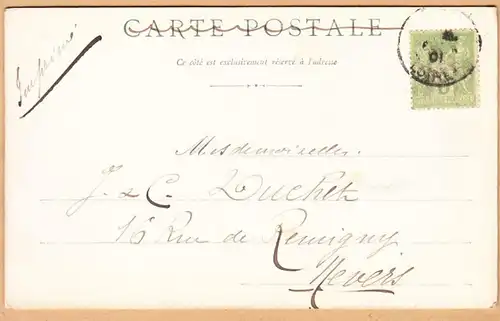 CARTE POSTALE
Ce côté est exclusivement réservé à l'adresse
Imprimé
Mesdemoiselles
J. & C. Duchet
16 Rue de Remigny
Nevers
01